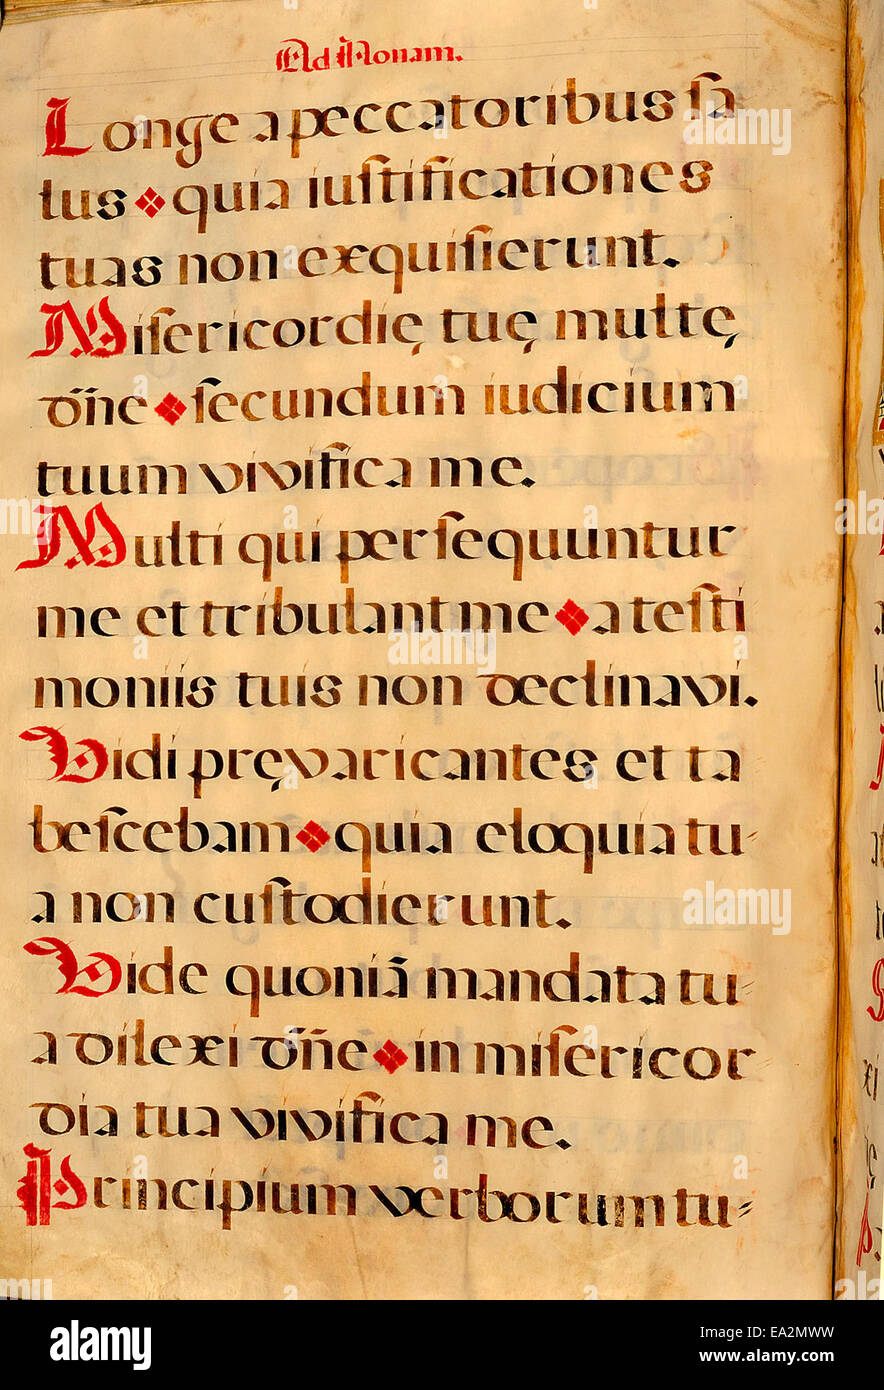 Ad Nonam.
Longe a peccatoribus ſa
lus quia iuſtificationes
tuas non exquiſierunt.
Miſericordię tuę multę
dn̄e ſecundum iudicium
tuum vivifica me.
Multi qui perſequuntur
me et tribulant me a teſti
moniis tuis non declinavi.
Vidi pręvaricantes et ta
beſcebam quia eloquia tu-
a non cuſtodierunt.
Vide quoniā mandata tu-
a dilexi dn̄e in miſericor
dia tua vivifica me.
Principium verborum tu-
alamy
Image ID: EA2MWW
www.alamy.com